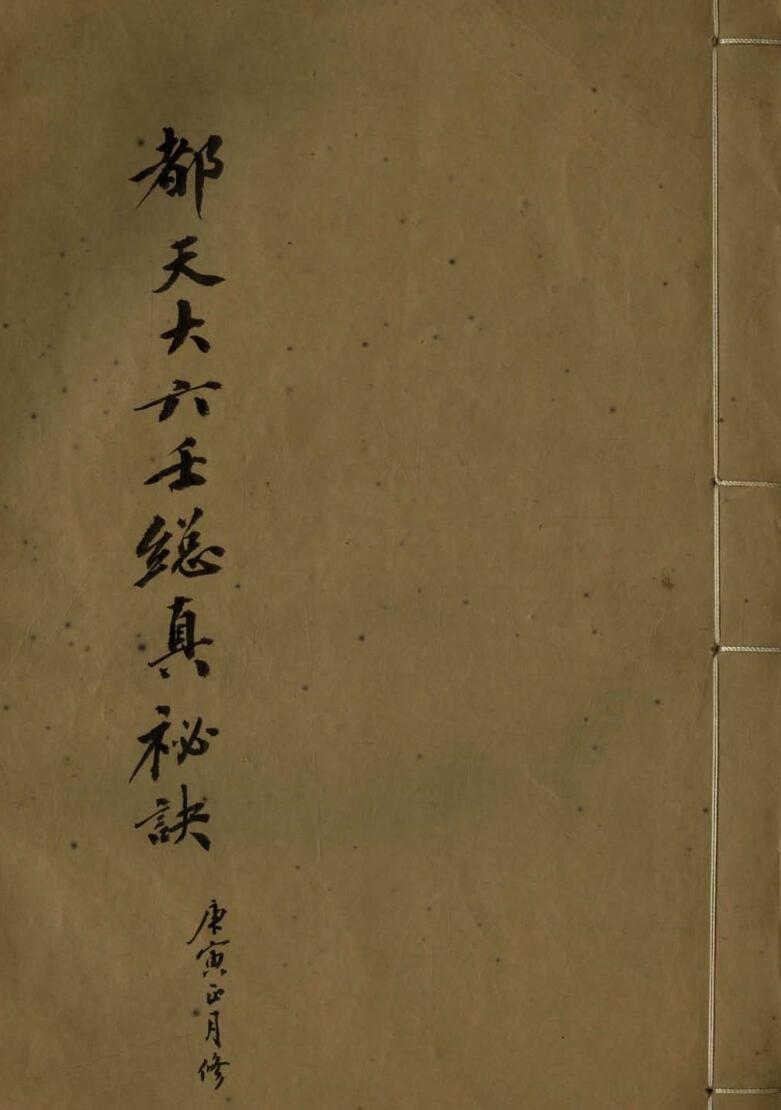 都天大六壬總真祕訣
庚寅正月修